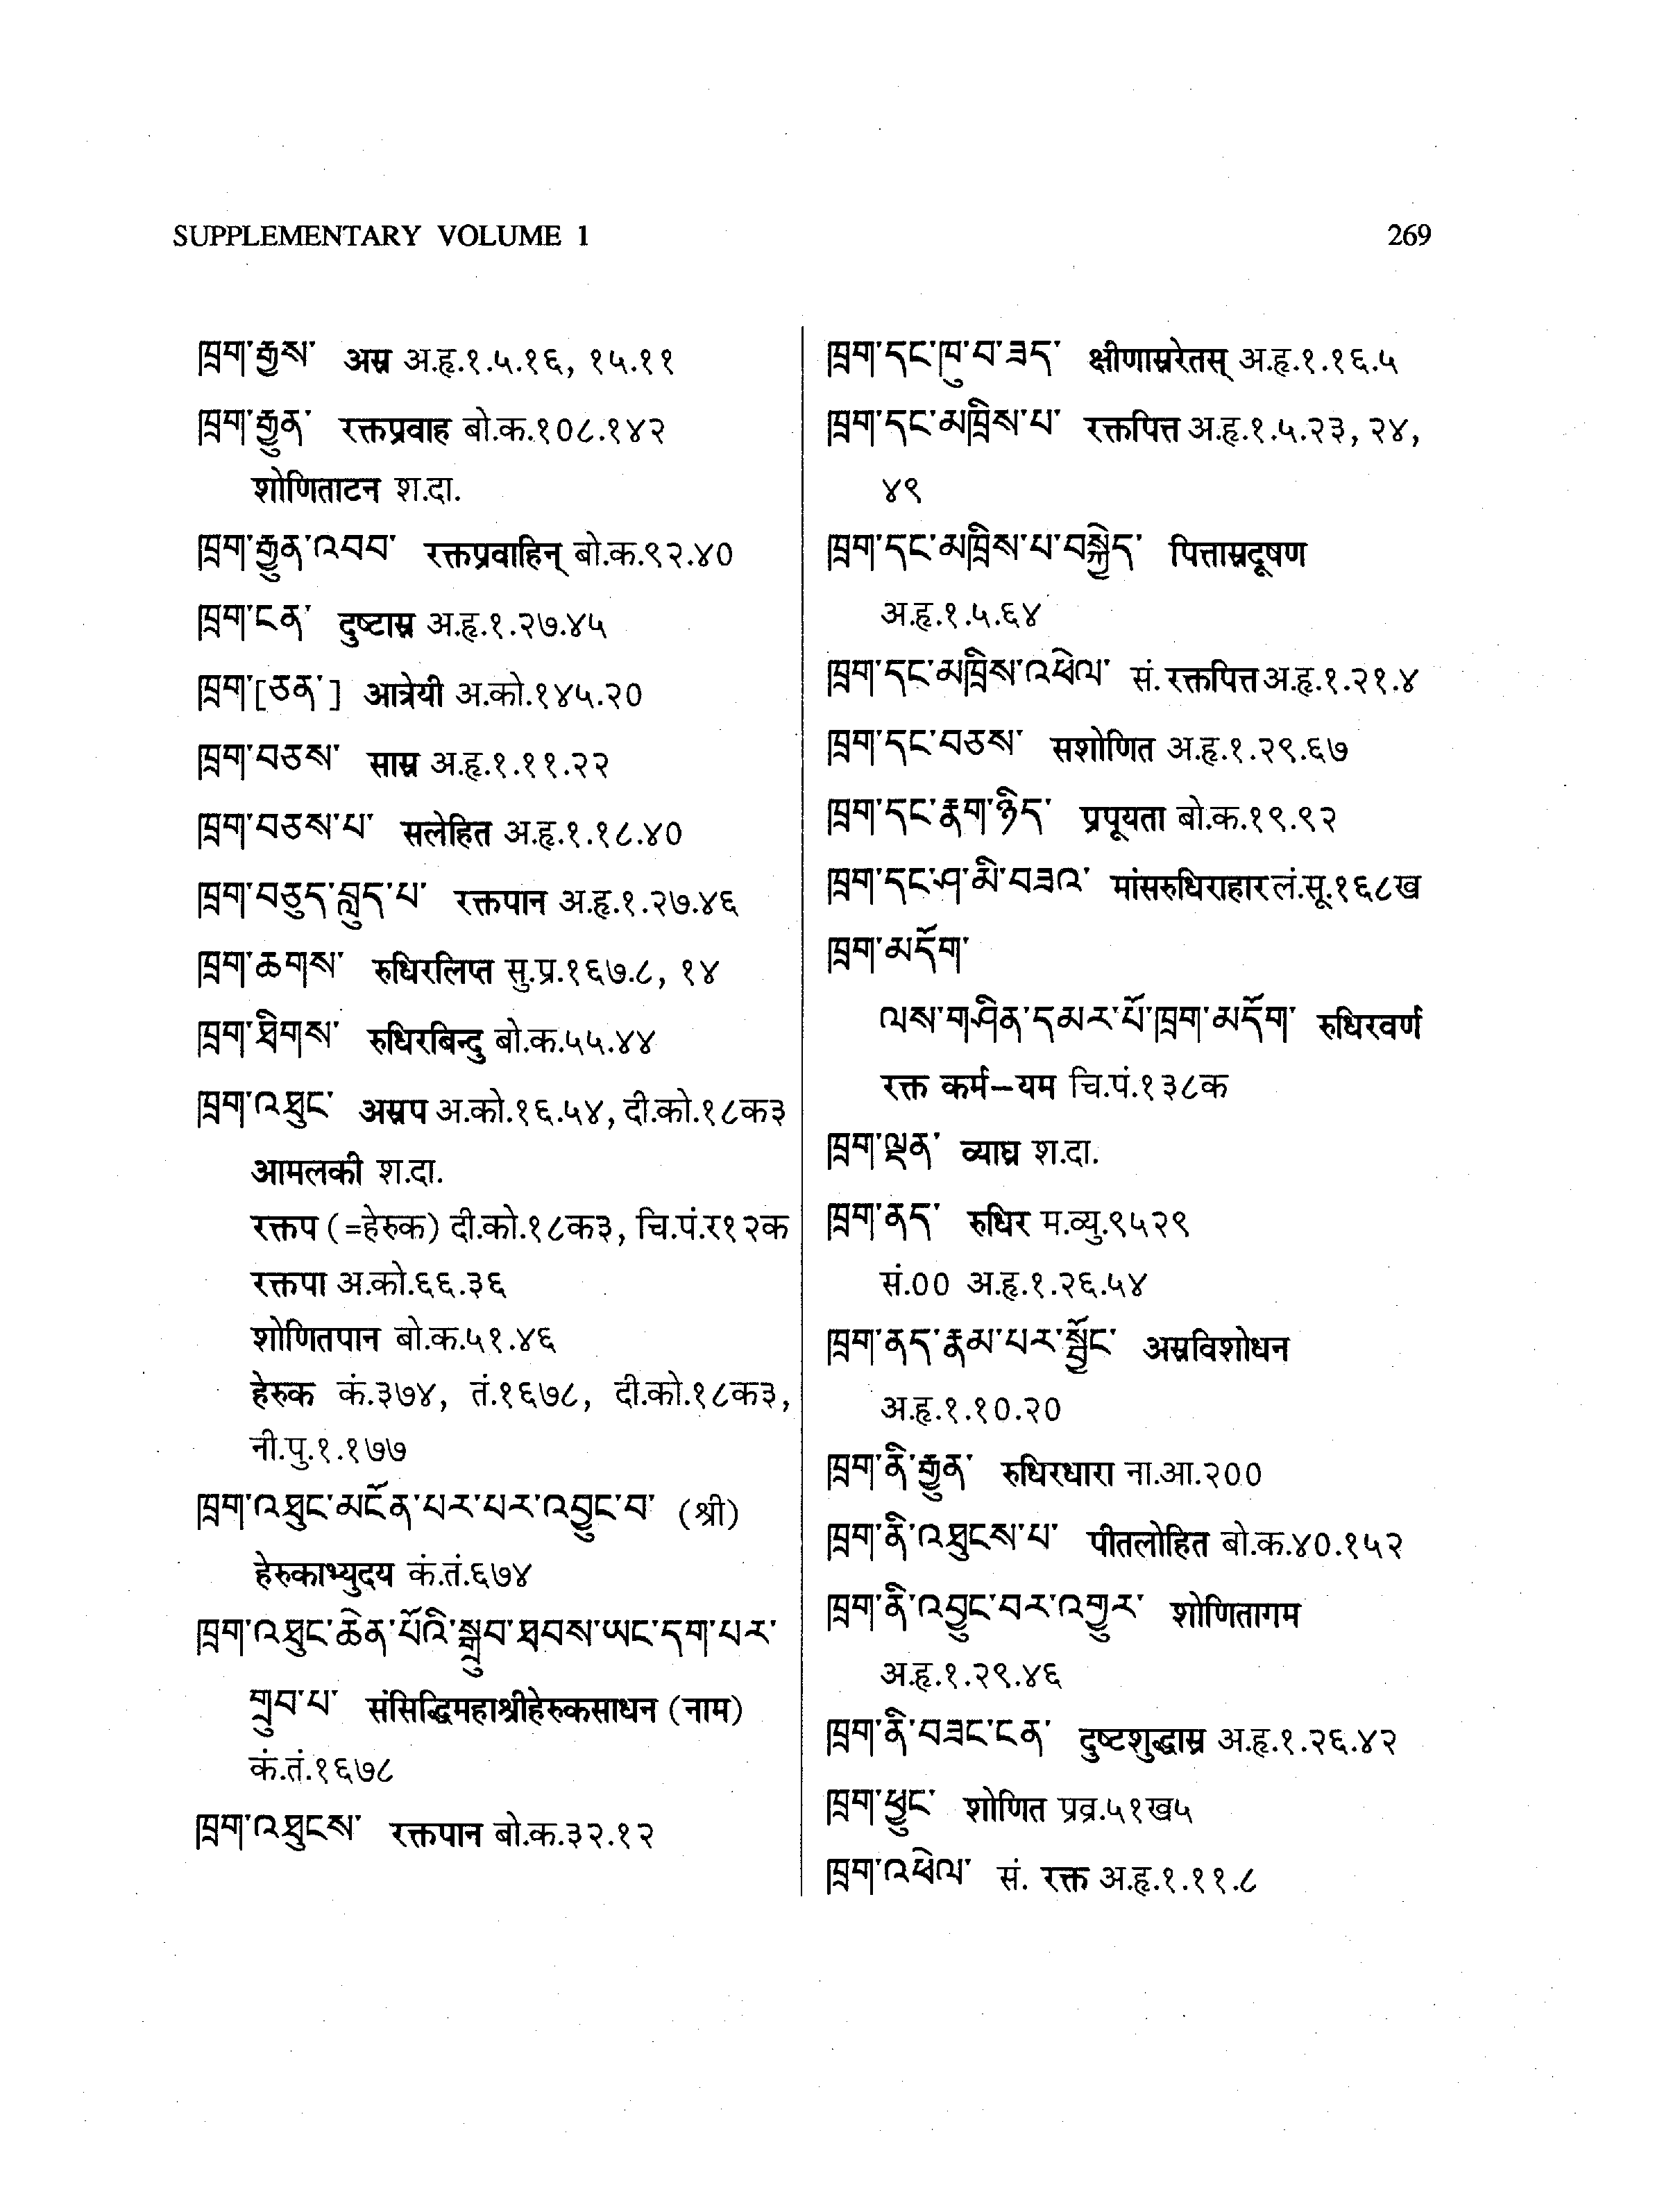 SUPPLEMENTARY VOLUME 1
269
ཁྲག་རྒྱས་ अस्र अ.हृ.१.५.१६, १५.११
ཁྲག་རྒྱུན་ रक्तप्रवाह बो.क.१०८.१४२
शोणिताटन श.दा.
ཁྲག་རྒྱུན་འབབ་ रक्तप्रवाहिन् बो.क.९२.४०
ཁྲག་ངན་ दुष्टास्र अ.हृ.१.२७.४५
ཁྲག་[ཅན་] आत्रेयी अ.को.१४५.२०
ཁྲག་བཅས་ सास्र अ.हृ.१.११.२२
ཁྲག་བཅས་པ་ सलेहित अ.हृ.१.१८.४०
ཁྲག་བཅུད་བླུད་པ་ रक्तपान अ.हृ.१.२७.४६
ཁྲག་ཆགས་ रुधिरलिप्त सु.प्र.१६७.८, १४
ཁྲག་ཐིགས་ रुधिरबिन्दु बो.क.५५.४४
ཁྲག་འཐུང་ अस्रप अ.को.१६.५४, दी.को.१८क३
आमलकी श.दा.
रक्तप (=हेरुक) दी.को.१८क३, चि.पं.र१२क
रक्तपा अ.को.६६.३६
शोणितपान बो.क.५१.४६
हेरुक कं.३७४, तं.१६७८, दी.को.१८क३,
नी.पु.१.१७७
ཁྲག་འཐུང་མངོན་པར་པར་འབྱུང་བ་ (श्री)
हेरुकाभ्युदय कं.तं.६७४
ཁྲག་འཐུང་ཆེན་པོའི་སྒྲུབ་ཐབས་ཡང་དག་པར་
གྲུབ་པ་ संसिद्धिमहाश्रीहेरुकसाधन (नाम)
कं.तं.१६७८
ཁྲག་འཐུངས་ रक्तपान बो.क.३२.१२
ཁྲག་དང་ཁུ་བ་ཟད་ क्षीणास्ररेतस् अ.हृ.१.१६.५
ཁྲག་དང་མཁྲིས་པ་ रक्तपित्त अ.हृ.१.५.२३, २४,
४९
ཁྲག་དང་མཁྲིས་པ་བསྐྱེད་ पित्तास्रदूषण
अ.हृ.१.५.६४
ཁྲག་དང་མཁྲིས་འཕེལ་ सं. रक्तपित्त अ.हृ.१.२१.४
ཁྲག་དང་བཅས་ सशोणित अ.हृ.१.२९.६७
ཁྲག་དང་རྣག་ཉིད་ प्रपूयता बो.क.१९.९२
ཁྲག་དང་ཤ་མི་བཟའ་ मांसरुधिराहार लं.सू.१६८ख
ཁྲག་མདོག་
ལས་གཤིན་དམར་པོ་ཁྲག་མདོག་ रुधिरवर्ण
रक्त कर्म–यम चि.पं.१३८क
ཁྲག་ལྡན་ व्याघ्र श.दा.
ཁྲག་ནད་ रुधिर म.व्यु.९५२९
सं.०० अ.हृ.१.२६.५४
ཁྲག་ནད་རྣམ་པར་སྦྱོང་ अस्रविशोधन
अ.हृ.१.१०.२०
ཁྲག་ནི་རྒྱུན་ रुधिरधारा ना.आ.२००
ཁྲག་ནི་འཐུངས་པ་ पीतलोहित बो.क.४०.१५२
ཁྲག་ནི་འབྱུང་བར་འགྱུར་ शोणितागम
अ.हृ.१.२९.४६
ཁྲག་ནི་བཟང་ངན་ दुष्टशुद्धास्र अ.हृ.१.२६.४२
ཁྲག་ཕྱུང་ शोणित प्रव्र.५१ख५
ཁྲག་འཕེལ་ सं. रक्त अ.हृ.१.११.८